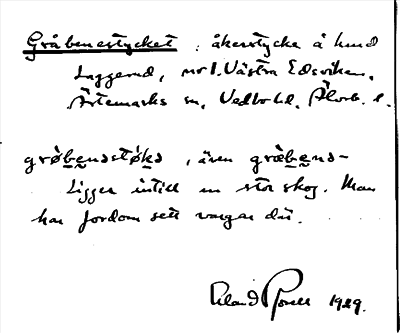 Gråbenestycket : åkerstycke å hmd
Laggerud, nr 1. Västra Edsviken,
Ärtemarks sn, Vedbo hd, Älvsb. l.
gròbenastøka, även gråbena-
Ligger intill en stor skog. Man
har fordom sett vargar där.
Erland 1929.